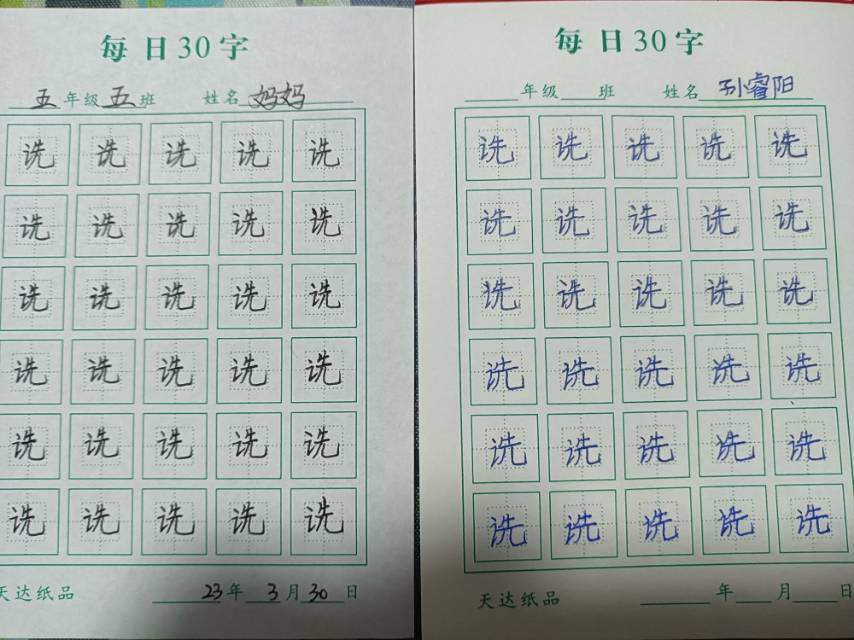 每日30字
五年级五班 姓名妈妈
诜 诜 诜 诜 诜
诜 诜 诜 诜 诜
诜 诜 诜 诜 诜
诜 诜 诜 诜 诜
诜 诜 诜 诜 诜
诜 诜 诜 诜 诜
天达纸品 23年3月30日
每日30字
年级 班 姓名孙睿阳
诜 诜 诜 诜 诜
诜 诜 诜 诜 诜
诜 诜 诜 诜 诜
诜 诜 诜 诜 诜
诜 诜 诜 诜 诜
诜 诜 诜 诜 诜
天达纸品 年 月 日